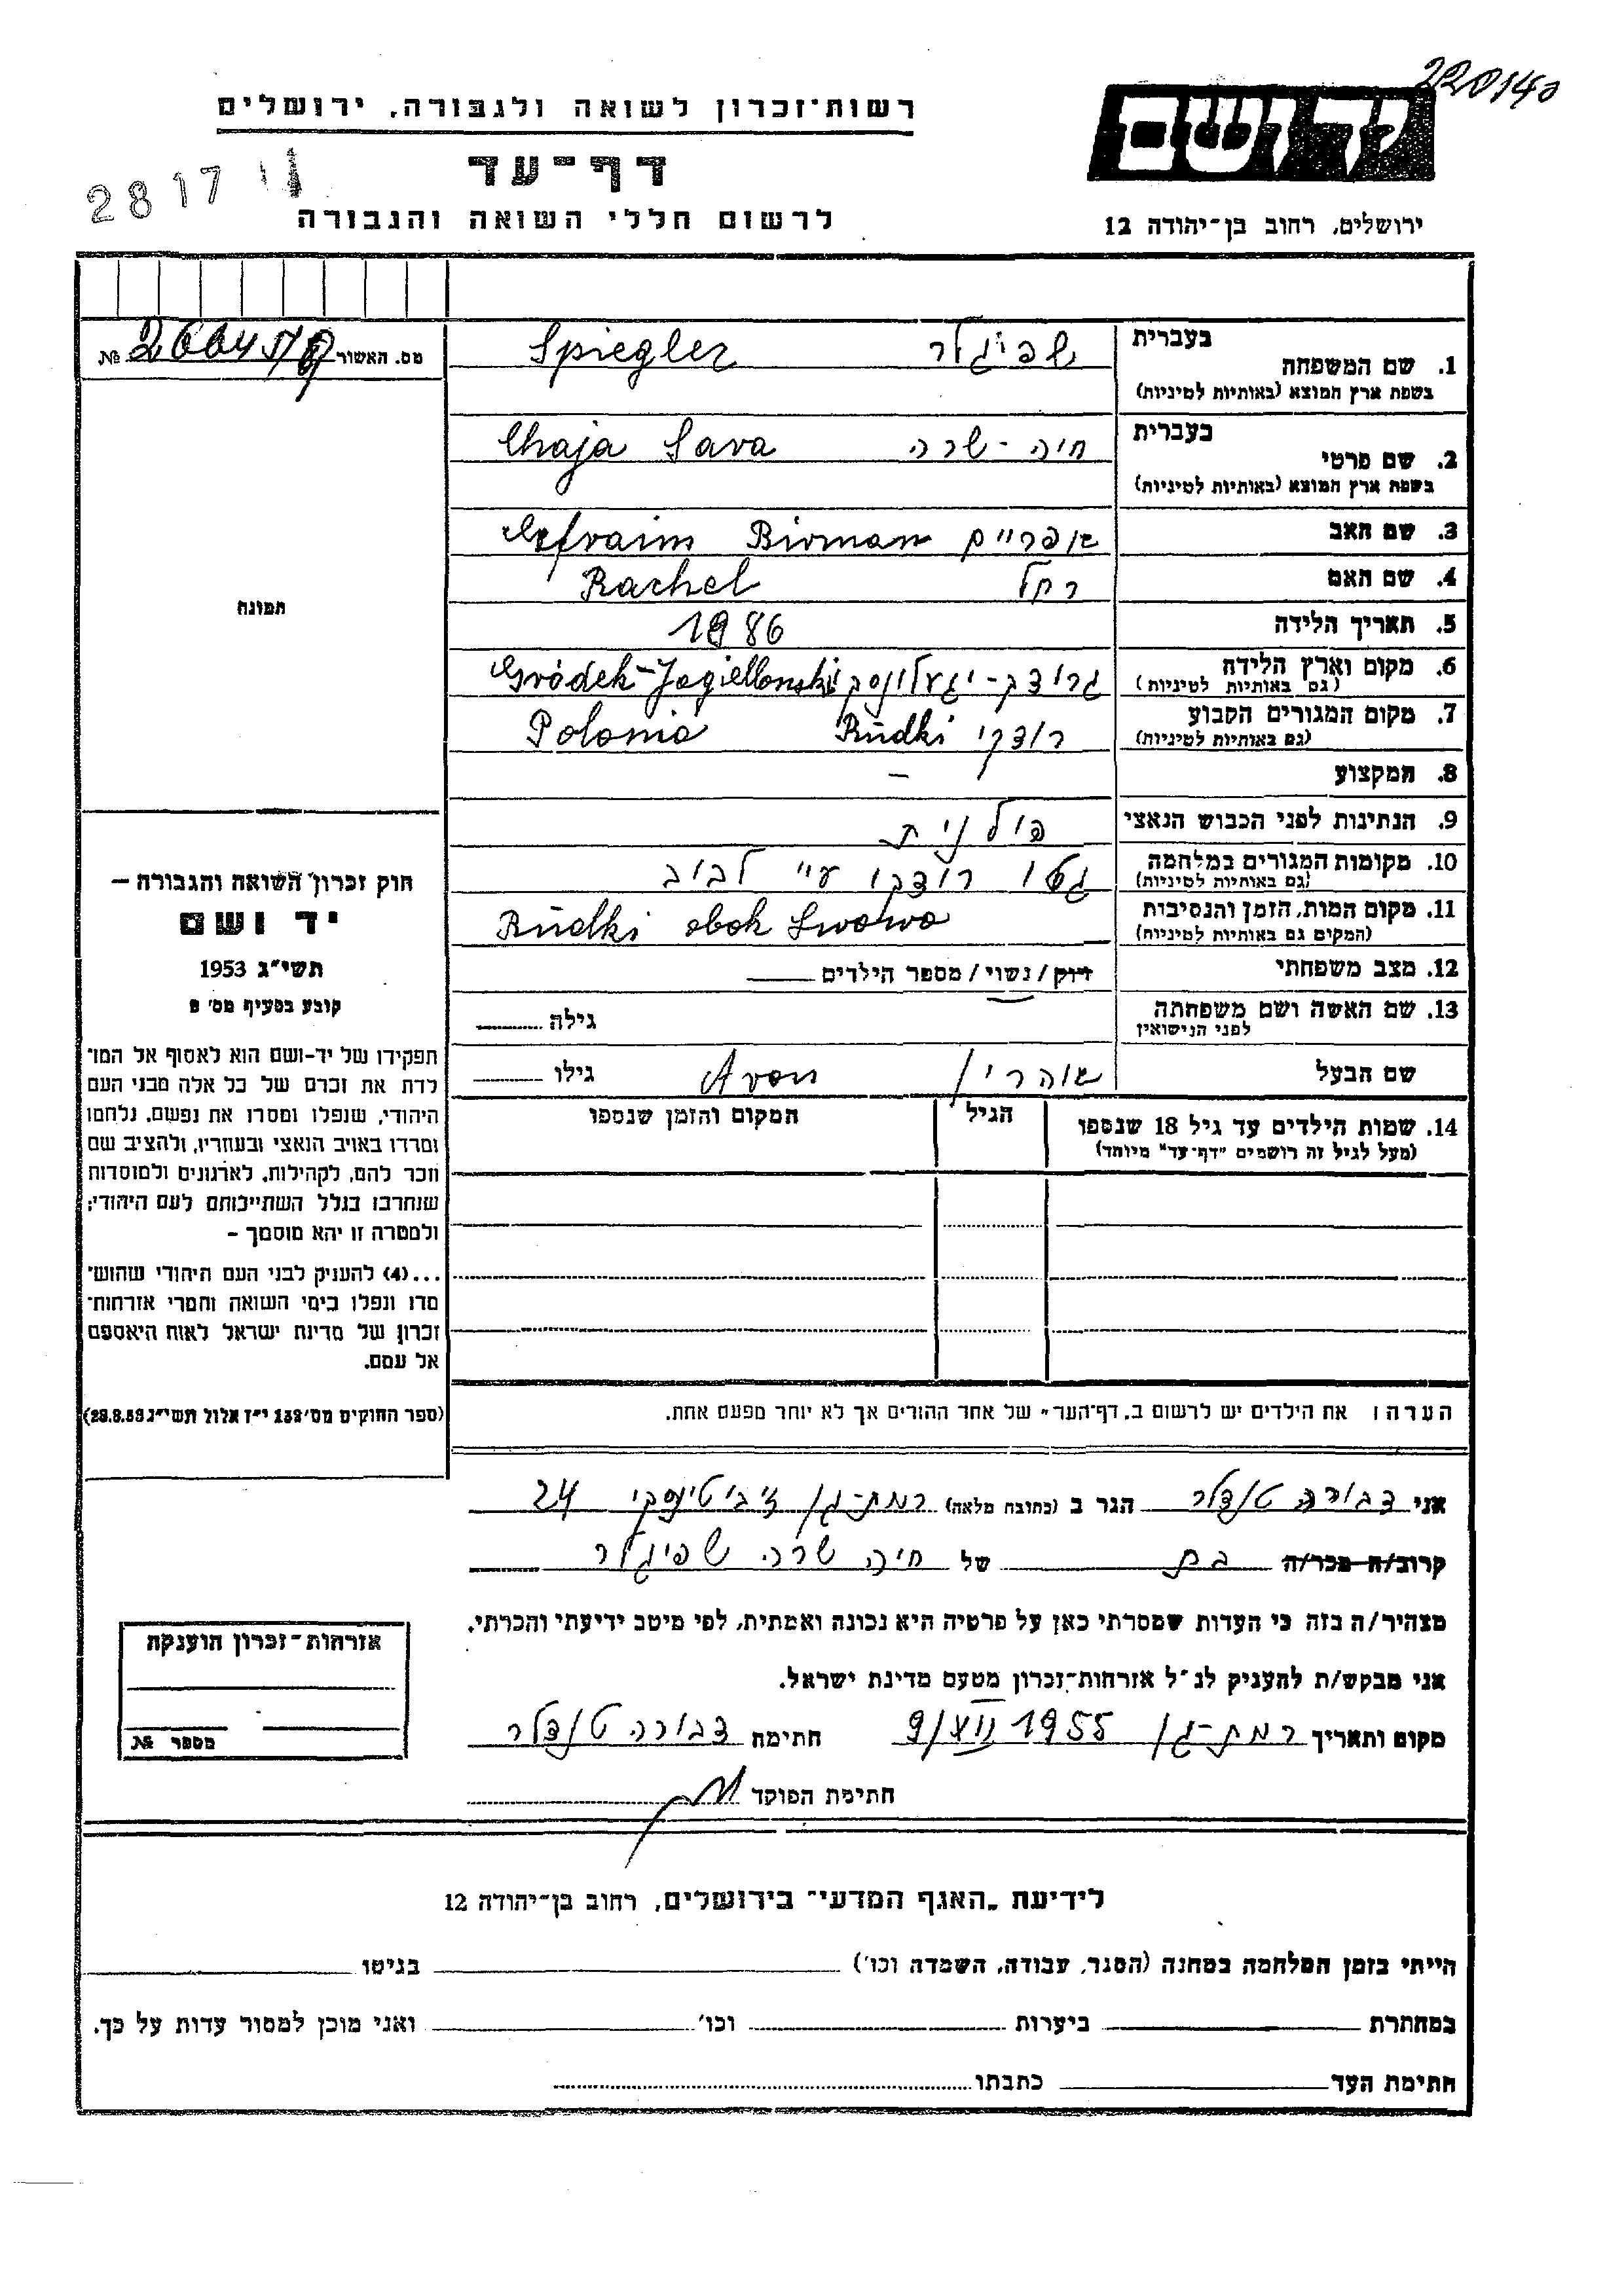 220140
רשות־זכרון לשואה ולגבורה, ירושלים
דף־עד
2817
לרשום חללי השואה והגבורה
ירושלים, רחוב בן־יהודה 12
מס. האשור №
1. שם המשפחה בעברית שפיגלר Spiegler
בשפת ארץ המוצא (באותיות לטיניות)
2. שם פרטי בעברית חיה - שרה Chaja Sara
בשפת ארץ המוצא (באותיות לטיניות)
3. שם האב אפריים Efraim Birman
4. שם האם רחל Rachel
5. תאריך הלידה 1886
6. מקום וארץ הלידה גרודק-יגעלונסקי Gródek-Jagielloński
(גם באותיות לטיניות)
7. מקום המגורים הקבוע רודקי Rudki Polonia
(גם באותיות לטיניות)
8. המקצוע –
9. הנתינות לפני הכבוש הנאצי פולנית
10. מקומות המגורים במלחמה גטו רודקי ע"י לבוב
(גם באותיות לטיניות)
11. מקום המות, הזמן והנסיבות Rudki obok Lwowa
(המקום גם באותיות לטיניות)
12. מצב משפחתי רוק/נשוי/מספר הילדים
13. שם האשה ושם משפחתה גילה
לפני הנישואין
שם הבעל אהרן Aron גילו
14. שמות הילדים עד גיל 18 שנספו הגיל המקום והזמן שנספו
(מעל לגיל זה רושמים "דף־עד" מיוחד)
הערה: את הילדים יש לרשום ב„דף־העד" של אחד ההורים אך לא יותר מפעם אחת.
תמונה
חוק זכרון השואה והגבורה –
יד ושם
תשי"ג 1953
קובע בסעיף מס' 2
תפקידו של יד-ושם הוא לאסוף אל המו־
לדת את זכרם של כל אלה מבני העם
היהודי, שנפלו ומסרו את נפשם, נלחמו
ומרדו באויב הנאצי ובעוזריו, ולהציב שם
וזכר להם, לקהילות, לארגונים ולמוסדות
שנחרבו בגלל השתייכותם לעם היהודי;
ולמטרה זו יהא מוסמך –
...(4) להעניק לבני העם היהודי שהוש־
מדו ונפלו בימי השואה והמרי אזרחות־
זכרון של מדינת ישראל לאות היאספם
אל עמם.
(ספר החוקים מס' 132 י"ז אלול תשי"ג 28.8.53)
אני דבורה טנדלר הגר ב (כתובת מלאה) רמת-גן ז'בוטינסקי 24
קרוב/ה מכר/ה בת של חיה שרה שפיגלר
מצהיר/ה בזה כי העדות שמסרתי כאן על פרטיה היא נכונה ואמתית, לפי מיטב ידיעתי והכרתי.
אני מבקש/ת להעניק לנ"ל אזרחות־זכרון מטעם מדינת ישראל.
מקום ותאריך רמת-גן 9/VII 1955 חתימה דבורה טנדלר
חתימת הפוקד
אזרחות־זכרון הוענקה
מספר №
לידיעת „האגף המדעי" בירושלים, רחוב בן־יהודה 12
הייתי בזמן המלחמה במחנה (הסגר, עבודה, השמדה וכו') בגיטו
במחתרת ביערות וכו' ואני מוכן למסור עדות על כך.
חתימת העד כתבתו